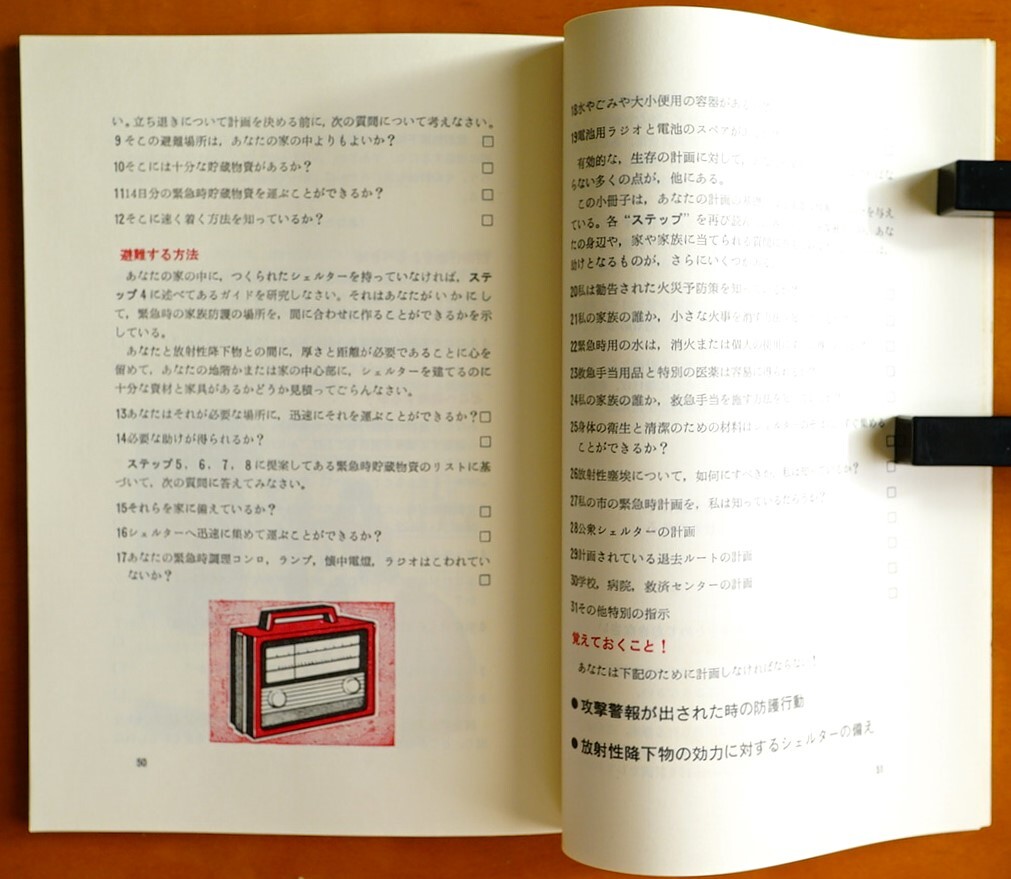 い。立ち退きについて計画を決める前に，次の質問について考えなさい。
9そこの避難場所は，あなたの家の中よりもよいか？ □
10そこには十分な貯蔵物資があるか？ □
1114日分の緊急時貯蔵物資を運ぶことができるか？ □
12そこに速く着く方法を知っているか？ □
避難する方法
あなたの家の中に，つくられたシェルターを持っていなければ，ステ
ップ4に述べてあるガイドを研究しなさい。それはあなたがいかにし
て，緊急時の家族防護の場所を，間に合わせに作ることができるかを示
している。
あなたと放射性降下物との間に，厚さと距離が必要であることに心を
留めて，あなたの地階かまたは家の中心部に，シェルターを建てるのに
十分な資材と家具があるかどうか見積ってごらんなさい。
13あなたはそれが必要な場所に，迅速にそれを運ぶことができるか？□
14必要な助けが得られるか？ □
ステップ5，6，7，8に提案してある緊急時貯蔵物資のリストに基
づいて，次の質問に答えてみなさい。
15それらを家に備えているか？ □
16シェルターへ迅速に集めて運ぶことができるか？ □
17あなたの緊急時調理コンロ，ランプ，懐中電燈，ラジオはこわれてい
ないか？ □
50
18水やごみや大小便用の容器が
19電池用ラジオと電池のスペアが
有効的な，生存の計画に対して，
らない多くの点が，他にある。
この小冊子は，あなたの計画の を与え
ている。各“ステップ”を再び読 あな
たの身辺や，家や家族に当てられる
助けとなるものが，さらにいくつか
20私は勧告された火災予防策を知
21私の家族の誰か，小さな火事を
22緊急時用の水は，消火または
23救急手当用品と特別の医薬は容易に
24私の家族の誰か，救急手当を施す方法を
25身体の衛生と清潔のための材料は すぐ集める □
ことができるか？
26放射性塵埃について，如何にすべきか， □
27私の市の緊急時計画を，私は知っているだろうか？ □
28公衆シェルターの計画 □
29計画されている退去ルートの計画 □
30学校，病院，救済センターの計画 □
31その他特別の指示
覚えておくこと！
あなたは下記のために計画しなければならない！
●攻撃警報が出された時の防護行動
●放射性降下物の効力に対するシェルターの備え
51